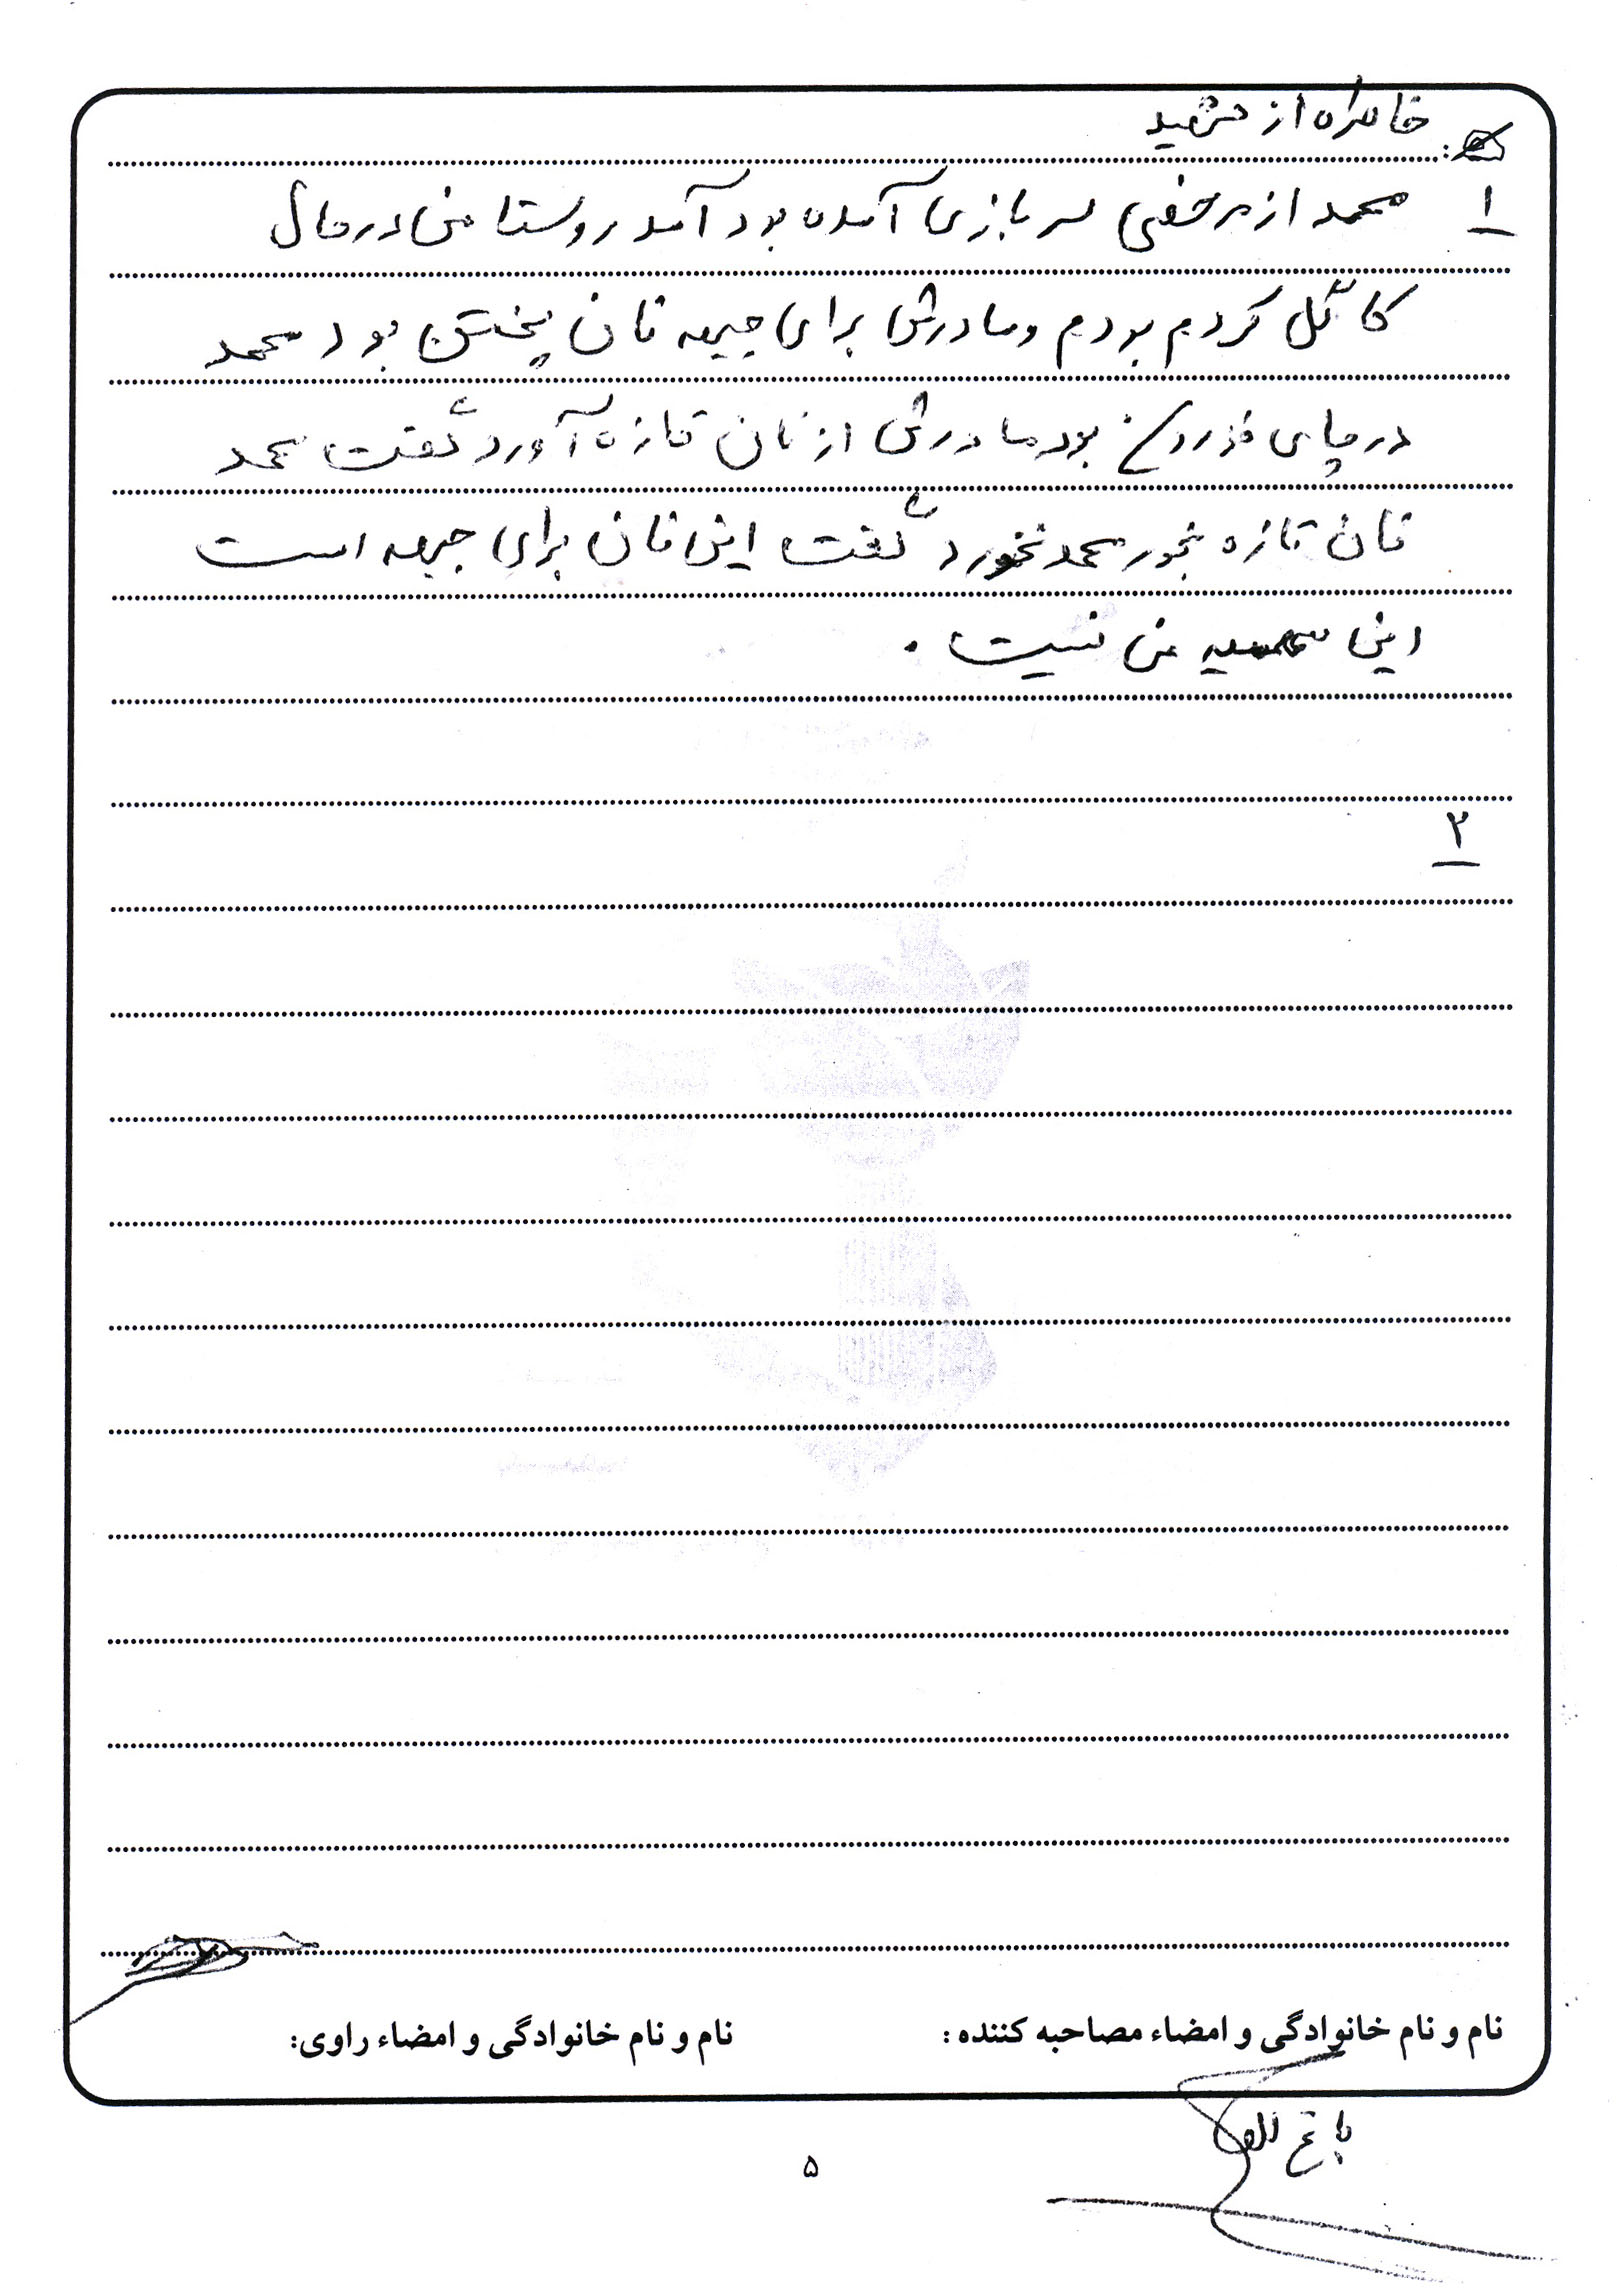 خاطره از شهید
:
۱ محمد از مرخصی سربازی آمده بود آمد روستا من در حال
کاگل کردم بودم و مادرش برای جبهه نان پختن بود محمد
در جای بود مادرش از نان تازه آورد گفت محمد
نان تازه بخور محمد نخورد گفت این نان برای جبهه است
این من نیست .
۲
نام و نام خانوادگی و امضاء مصاحبه کننده :
نام و نام خانوادگی و امضاء راوی:
۵